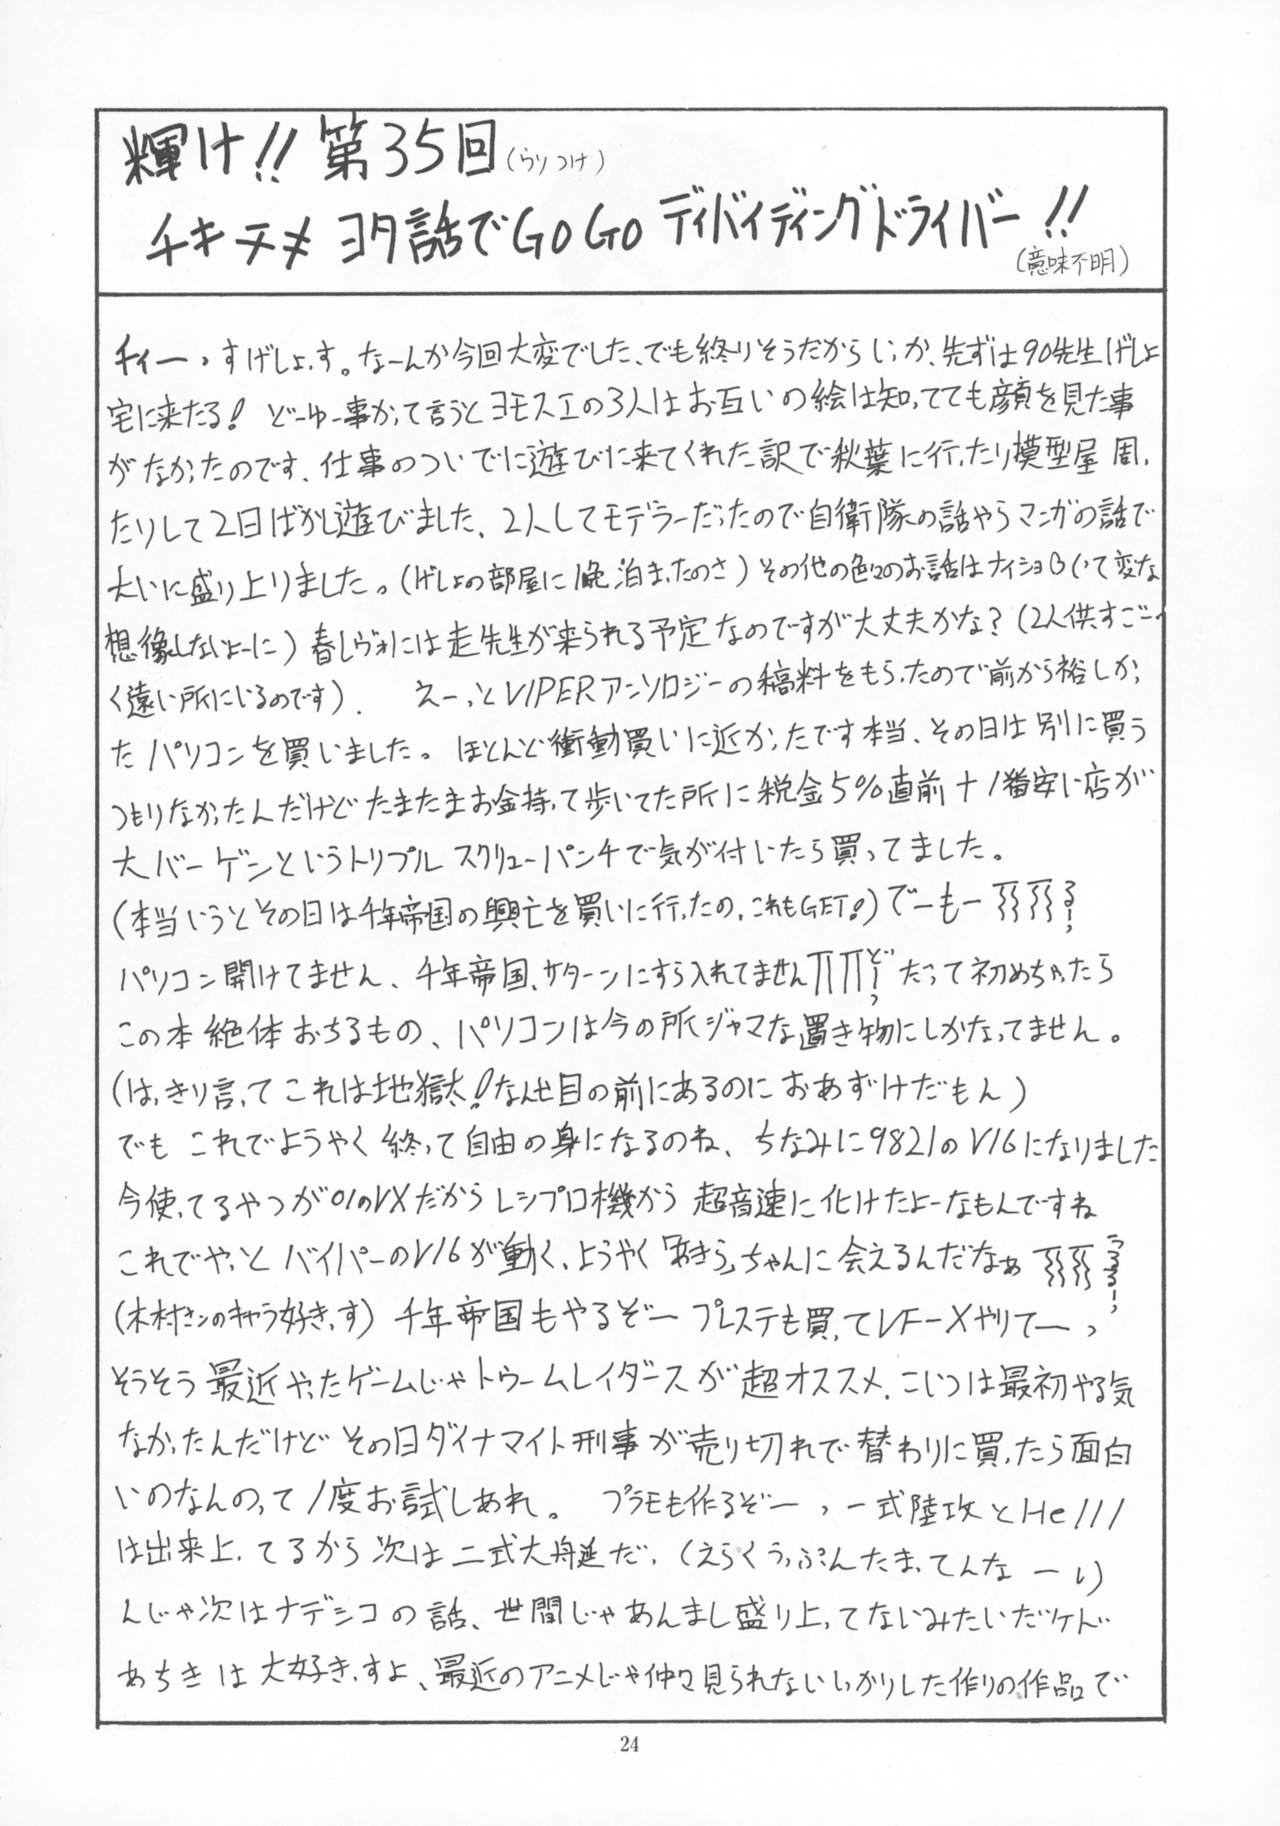 輝け!! 第35回(うりつけ)
チキチキ ヨタ話でGoGo ディバイディングドライバー!!
(意味不明)
チィーっすげしょっす。なーんか今回大変でした、でも終りそうだからいっか、先ずは90先生げしょ
宅に来たる! どーゆー事かって言うとヨモスエの3人はお互いの絵は知ってても顔を見た事
がなかったのです、仕事のついでに遊びに来てくれた訳で秋葉に行ったり模型屋周っ
たりして2日ばかし遊びました、2人してモデラーだったので自衛隊の話やらマンガの話で
大いに盛り上りました。(げしょの部屋に1晩泊まったのさ)その他の色々のお話はナイショB(って変な
想像しないよーに)春レヴォには走先生が来られる予定なのですが大丈夫かな?(2人供すごーっ
く遠い所にいるのです). えーっとVIPERアンソロジーの稿料をもらったので前から裕しかっ
たパソコンを買いました。ほとんど衝動買いに近かったです本当、その日は別に買う
つもりなかったんだけどたまたまお金持って歩いてた所に税金5%直前+1番安い店が
大バーゲンというトリプルスクリューパンチで気が付いたら買ってました。
(本当いうとその日は千年帝国の興亡を買いに行ったの、これもGET!)でーもー
パソコン開けてません、千年帝国、サターンにすら入れてません だって初めちゃったら
この本絶体おちるもの、パソコンは今の所ジャマな置き物にしかなってません。
(はっきり言ってこれは地獄太!なんせ目の前にあるのにおあずけだもん)
でもこれでようやく終って自由の身になるのね、ちなみに9821のV16になりました
今使ってるやつが01のVXだからレシプロ機から超音速に化けたよーなもんですね
これでやっとバイパーのV16が動く、ようやく「あきら」ちゃんに会えるんだなぁ
(木村サンのキャラ好きっす)千年帝国もやるぞー プレステも買ってVF-Xやりてーっ
そうそう最近やったゲームじゃトゥームレイダースが超オススメ、こいつは最初やる気
なかったんだけどその日ダイナマイト刑事が売り切れで替わりに買ったら面白
いのなんのって1度お試しあれ。 プラモも作るぞーっ一式陸攻とHe111
は出来上ってるから次は二式大舟延だ、(えらくうっぷんたまってんなーい)
んじゃ次はナデシコの話、世間じゃあんまし盛り上ってないみたいだケド
あちきは大好きっすよ、最近のアニメじゃ仲々見られないしっかりした作りの作品で
24